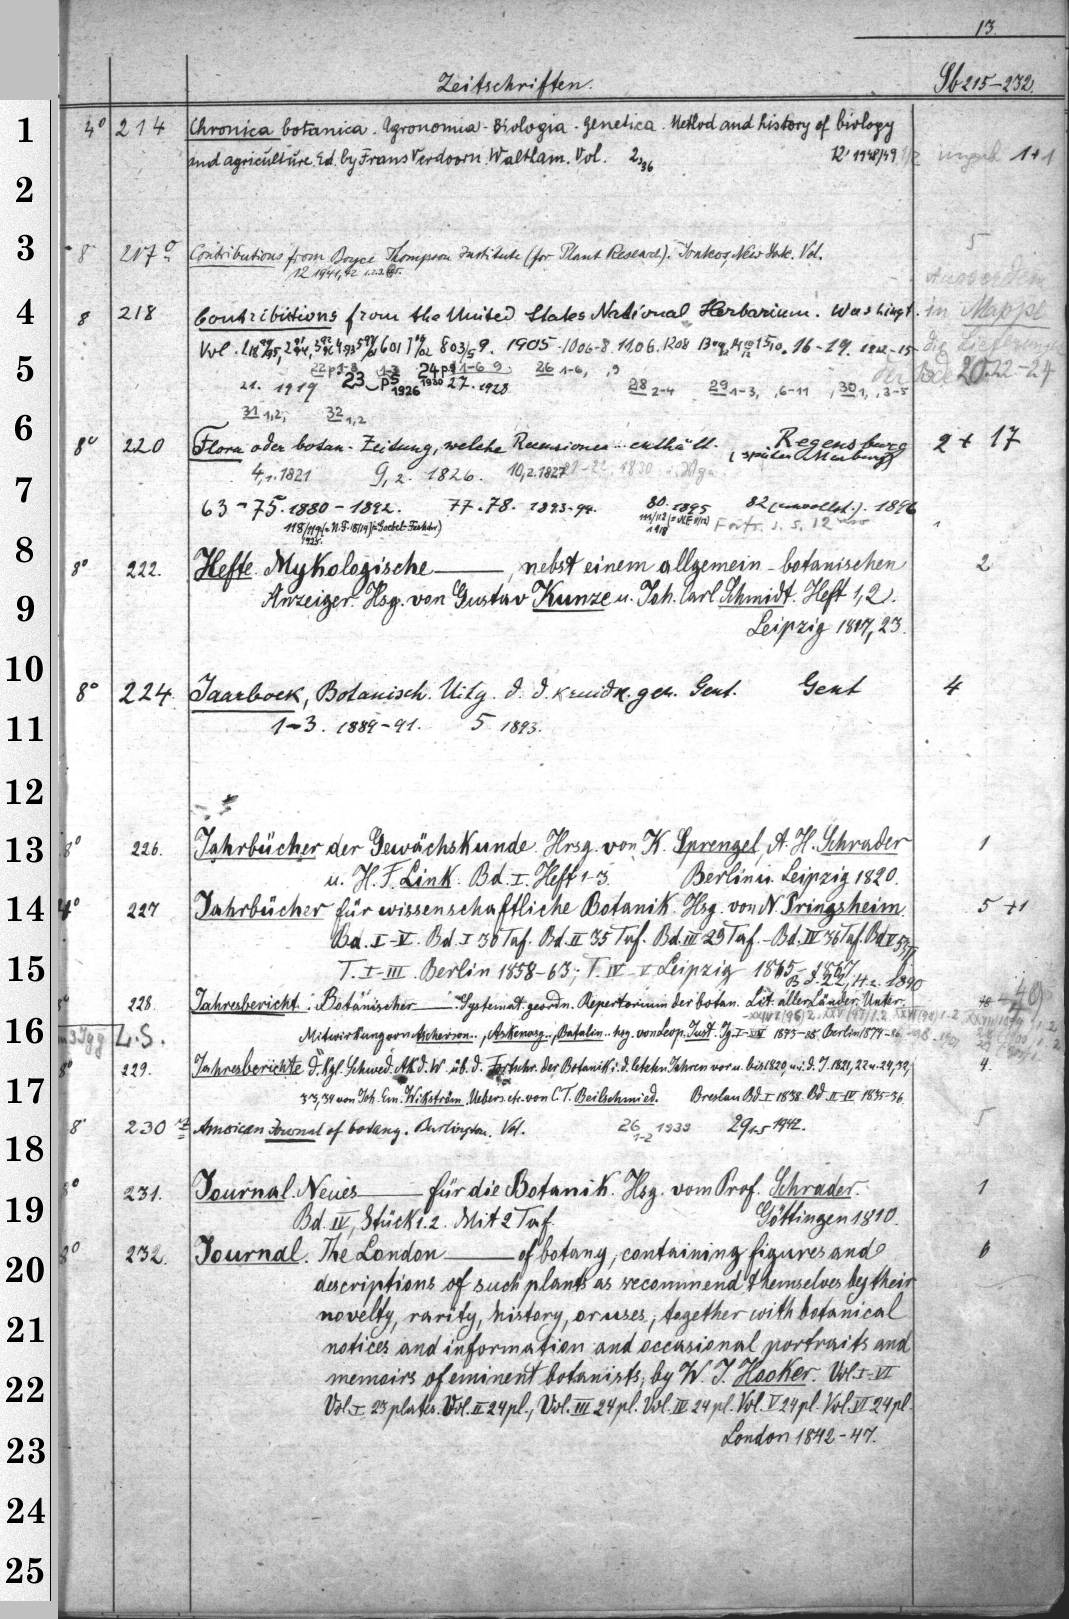 13.
Zeitschriften. Sb 215-232.
1
4° 214 Chronica botanica. Agronomia - Biologia - Genetica. Method and history of biology
and agriculture. Ed. by Frans Verdoorn. Waltham. Vol. 2, 36 12' 1948/49 1+1
2
3
8 217 a Contributions from Boyce Thompson Institute (for Plant Research). Yonkers, New York. Vol. 5
12 1941/42
4
8 218 Contributions from the United States National Herbarium. Washingt. in Mappe
Vol. 1905 16-19. 1912-15
5
20. 22-24
21. 1919 23 p5 1926 1930 27. 1928 28 2-4 29 1-3, 6-11 30 1, 3-5
31 1,2, 32 1,2
6
8° 220 Flora oder botan. Zeitung, welche Recensionen enthält. Regensburg 2 + 17
(später Marburg)
4,1. 1821 9,2. 1826. 10,2. 1827
7
63-75. 1880-1892. 77.78. 1893-94. 80. 1895 82 (unvollst.). 1896
8
8° 222. Hefte. Mykologische ——, nebst einem allgemein-botanischen 2
9
Anzeiger. Hsg. von Gustav Kunze u. Joh. Carl Schmidt. Heft 1,2.
Leipzig 1817, 23.
10
8° 224. Jaarboek, Botanisch. Uitg. d. d. kruidk. gen. Gent. Gent 4
11
1-3. 1889-91. 5 1893.
12
13
8° 226. Jahrbücher der Gewächskunde. Hrsg. von K. Sprengel, A. H. Schrader 1
u. H. F. Link. Bd. I. Heft 1-3. Berlin u. Leipzig 1820.
14
4° 227 Jahrbücher für wissenschaftliche Botanik. Hsg. von N. Pringsheim. 5 +1
Bd. I-V. Bd. I 30 Taf. Bd. II 35 Taf. Bd. III 29 Taf. - Bd. IV 36 Taf. Bd V
15
T. I-III. Berlin 1858-63; T. IV - V Leipzig 1865-1867
Bd. 22, H 2. 1890
8° 228. Jahresbericht. Botanischer ——. Systemat. geordn. Repertorium der botan. Lit. aller Länder. Unter
16
L.S. Mitwirkung von Ascherson, Askenasy, Batalin hrg. von Leop. Just.
8° 229. Jahresberichte d. Kgl. Schwed. Ak. d. W. üb. d. Fortschr. der Botanik i. d. letzten Jahren vor u. bis 1820, u. i. d. J. 1821, 22 u. 24, 32, 4.
17
33, 34 von Joh. Em. Wikström. Uebers. etc. von C. T. Beilschmied. Breslau Bd. I 1838. Bd. II-IV 1835-36.
8° 230 American Journal of botany. Burlington. Vol. 26 1-2 1939 29 1-5 1942. 5
18
8° 231. Journal. Neues —— für die Botanik. Hsg. vom Prof. Schrader. 1
19
Bd. IV, Stück 1.2. Mit 2 Taf. Göttingen 1810.
8° 232. Journal. The London —— of botany, containing figures and 6
20
descriptions of such plants as recommend themselves by their
21
novelty, rarity, history, or uses; together with botanical
notices and information and occasional portraits and
22
memoirs of eminent botanists; by W. J. Hooker. Vol. I-VI
Vol. I. 23 plates. Vol. II 24 pl., Vol. III 24 pl. Vol. IV 24 pl. Vol. V 24 pl. Vol. VI 24 pl.
23
London 1842-47.
24
25